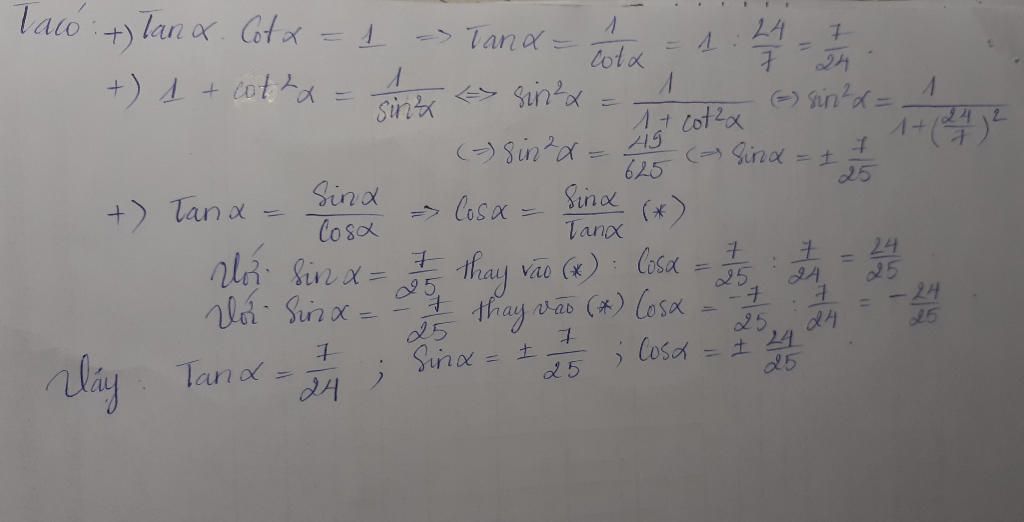 Ta có: +) Tanα . Cotα = 1 => Tanα = 1/cotα = 1 : 24/7 = 7/24.
+) 1 + cot²α = 1/sin²α <=> sin²α = 1/(1 + cot²α) <=> sin²α = 1/(1+(24/7)²)
<=> Sin²α = 49/625 <=> Sinα = ± 7/25
+) Tanα = Sinα/Cosα => Cosα = Sinα/Tanα (*)
Với: Sinα = 7/25 thay vào (*) : Cosα = 7/25 : 7/24 = 24/25
Với: Sinα = -7/25 thay vào (*) Cosα = -7/25 : 7/24 = -24/25
Vậy: Tanα = 7/24 ; Sinα = ± 7/25 ; Cosα = ± 24/25.